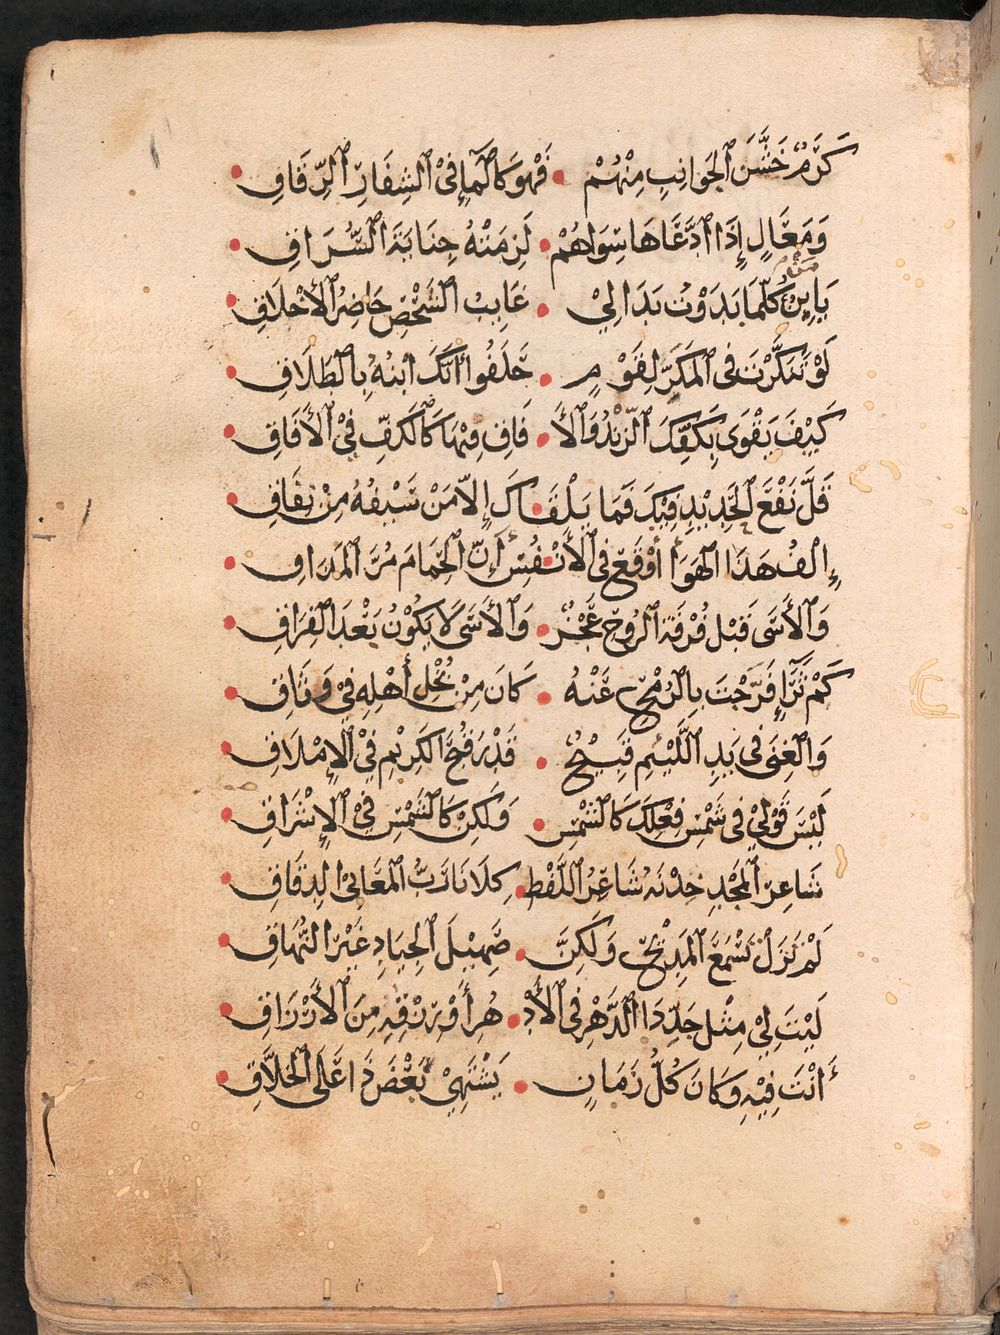 كَرَمٌ خَشَّنَ الْجَوَانِبَ مِنْهُمْ • فَهْوَ كَالْمَاءِ فِي الشِّفَارِ الرِّقَاقِ •
وَمَعَالٍ إِذَا ادَّعَاهَا سِوَاهُمْ • لَزِمَتْهُ جِنَايَةُ السُّرَّاقِ •
يَا بْنَ مَنْ كُلَّمَا بَدَوْتَ بَدَا لِيْ • غَايِبَ الشَّخْصِ حَاضِرَ الْأَخْلَاقِ •
لَوْ تَنَكَّرْتَ فِي الْمَكَرِّ لِقَوْمٍ • حَلَفُوا أَنَّكَ ابْنُهُ بِالطَّلَاقِ •
كَيْفَ يَقْوَى بِكَفِّكَ الزَّنْدُ وَالْآ • فَاقُ فِيْهَا كَالْكَفِّ فِيْ الْآفَاقِ •
قَلَّ نَفْعُ الْحَدِيْدِ فِيْكَ فَمَا يَلْقَـ • ـاكَ إِلَّا مَنْ سَيْفُهُ مِنْ نِفَاقِ •
إِلْفُ هَذَا الْهَوَا أَوْقَعَ فِي الْأَنْـ • ـفُسِ أَنَّ الْحِمَامَ مُرُّ الْمَذَاقِ •
وَالْأَسَى قَبْلَ فُرْقَةِ الرُّوْحِ عَجْزٌ • وَالْأَسَى لَا يَكُوْنُ بَعْدَ الْفِرَاقِ •
كَمْ ثَرَاءٍ فَرَّجْتَ بِالرُّمْحِ عَنْهُ • كَانَ مِنْ بُخْلِ أَهْلِهِ فِيْ وَثَاقِ •
وَالْغِنَى فِي يَدِ اللَّئِيْمِ قَبِيْحٌ • قَدْرَ قُبْحِ الْكَرِيْمِ فِيْ الْإِمْلَاقِ •
لَيْسَ قَوْلِيْ فِي شَمْسِ فِعْلِكَ كَالشَّمْسِ • وَلَكِنْ كَالشَّمْسِ فِيْ الْإِشْرَاقِ •
شَاعِرُ الْمَجْدِ خِدْنُهُ شَاعِرُ اللَّفْظِ • كِلَانَا رَبُّ الْمَعَانِيْ الدِّقَاقِ •
لَمْ تَزَلْ تَسْمَعُ الْمَدِيْحَ وَلَكِنَّ • صَهِيْلَ الْجِيَادِ غَيْرُ النُّهَاقِ •
لَيْتَ لِيْ مِثْلَ جَدِّ ذَا الدَّهْرِ فِي الْأَدْ • هُرِ أَوْ رِزْقِهِ مِنَ الْأَرْزَاقِ •
أَنْتَ فِيْهِ وَكَانَ كُلُّ زَمَانٍ • يَشْتَهِيْ بَعْضَ ذَا عَلَى الْخَلَّاقِ •